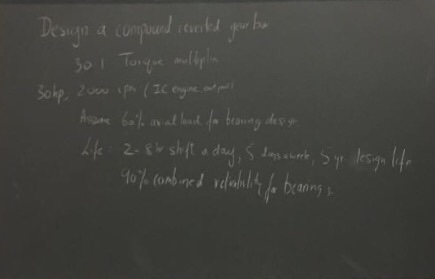 Design a compound reverted gear box
30:1 Torque multiplier
30 hp, 2000 rpm (IC engine output)
Assume 60% axial load for bearing design
Life: 2-8hr shift a day, 5 days a week, 5 yr design life
90% combined reliability for bearings